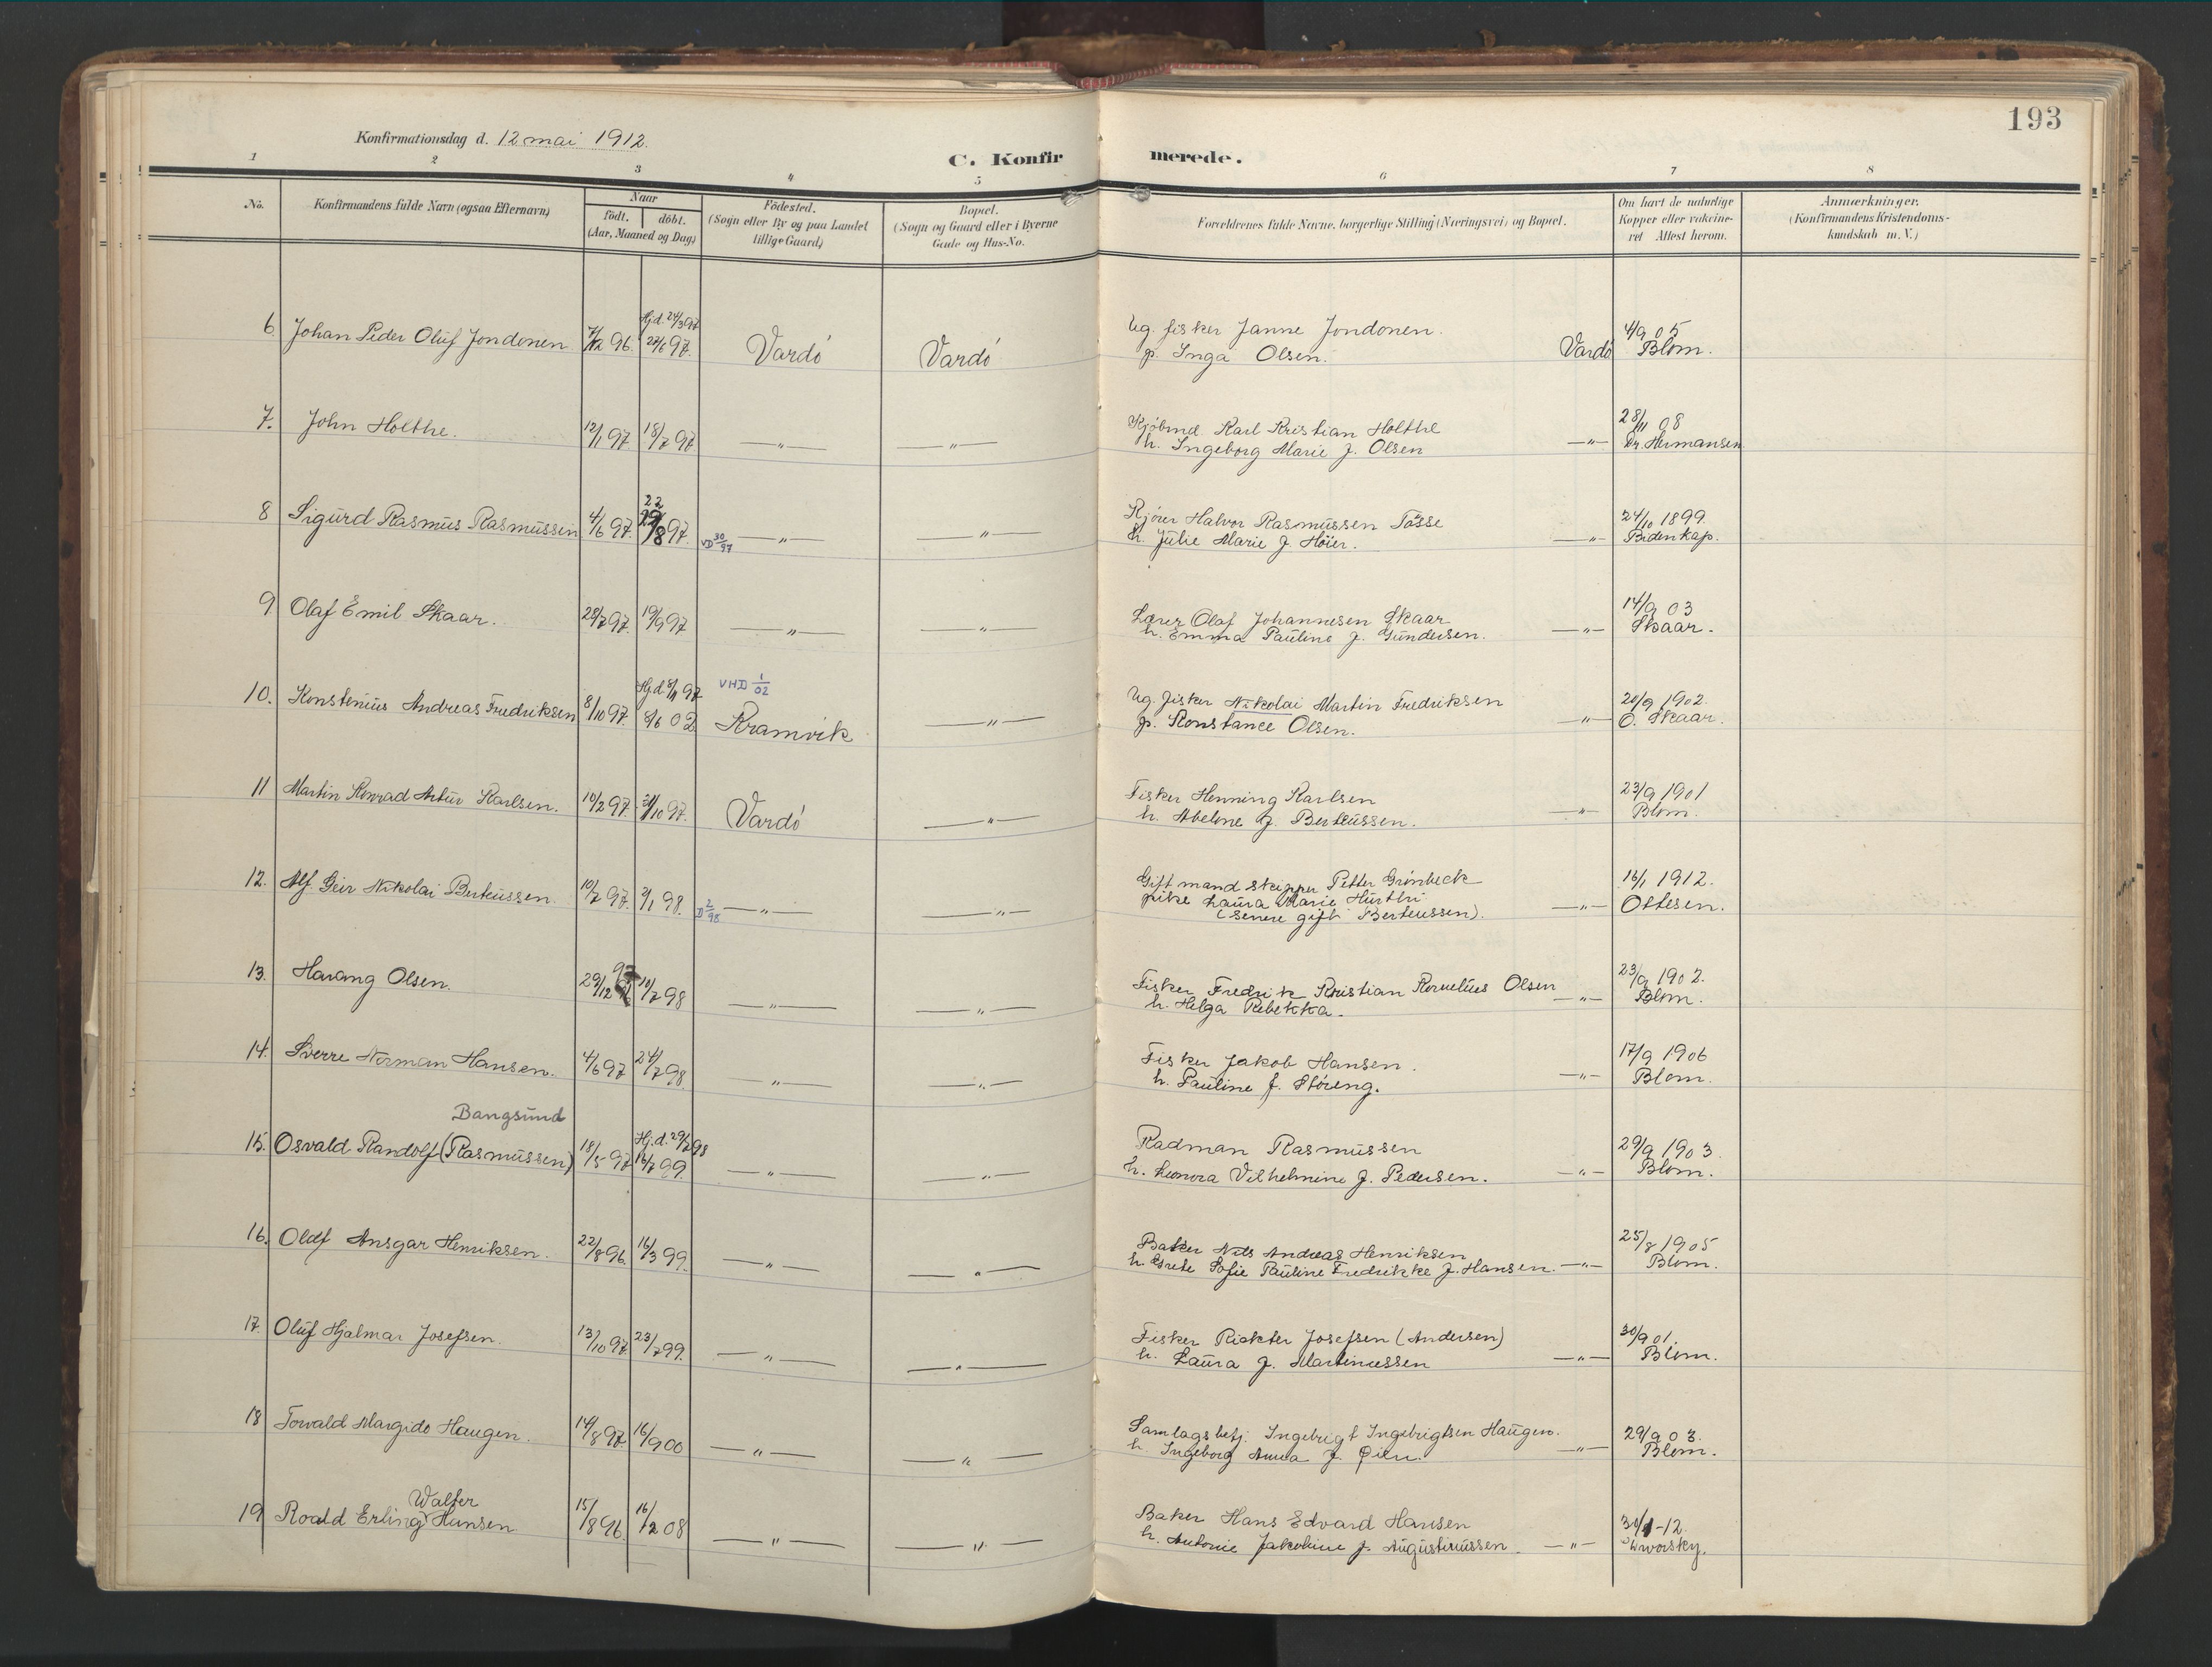 193
Konfirmationsdag d. 12 mai 1912.
C. Konfirmerede.
1 2 3 4 5 6 7 8
No.
Konfirmandens fulde Navn (ogsaa Efternavn)
Naar
födt. döbt.
(Aar, Maaned og Dag)
Födested.
(Sogn eller By og paa Landet
tillige Gaard)
Bopæl.
(Sogn og Gaard eller i Byerne
Gade og Hus-No.
Forældrenes fulde Navne, borgerlige Stilling (Næringsvei) og Bopæl.
Om havt de naturlige
Kopper eller vakcine-
ret Attest herom.
Anmærkninger.
(Konfirmandens Kristendoms-
kundskab m. V.)
6. Johan Peder Oluf Jondonen 7/12 96. Hjd. 24/3 97 27/6 97. Vardö Vardö
Ug. fisker Janne Jondonen.
p. Inga Olsen. Vardö
4/9 05
Blom.
7. John Holthe. 12/1 97. 18/7 97 —"— —"—
Kjöbmd. Karl Kristian Holthe
h. Ingeborg Marie f. Olsen —"—
28/11 08
Dr. Hermansen
8 Sigurd Rasmus Rasmussen 4/6 97. 22/8 97. VD 30/97 —"— —"—
Kjörer Halvor Rasmussen Tösse
h. Julie Marie f. Höier. —"—
24/10 1899.
Bidenkap.
9 Olaf Emil Skaar. 28/7 97. 19/9 97 —"— —"—
Lærer Olaf Johannesen Skaar
h. Emma Pauline f. Gundersen. —"—
14/9 03
Skaar.
10. Konstenius Andreas Fredriksen 8/10 97. Hj.d. 8/11 97 8/6 02 VHD 1/02 Kramvik —"—
Ug. fisker Nikolai Martin Fredriksen
p. Konstance Olsen. —"—
20/9 1902.
O. Skaar.
11 Martin Konrad Artur Karlsen. 10/2 97. 31/10 97. Vardö —"—
Fisker Henning Karlsen
h. Abelone f. Berteussen. —"—
23/9 1901
Blom.
12. Alf Geir Nikolai Berteussen. 10/7 97. 2/1 98. D 2/98 —"— —"—
Gift mand skipper Petter Grönbeck
pike Laura Marie Hurthi
(senere gift Berteussen). —"—
16/1 1912.
Ottesen.
13. Harang Olsen. 29/12 97 10/7 98 —"— —"—
Fisker Fredrik Kristian Kornelius Olsen
h. Helga Rebekka. —"—
23/9 1902.
Blom.
14. Sverre Norman Hansen. 4/6 97 24/7 98. —"— —"—
Fisker Jakob Hansen.
h. Pauline f. Störeng. —"—
17/9 1906
Blom.
Bangsund
15. Osvald Randolf (Rasmussen) 18/5 97 Hj.d. 29/7 98 16/7 99. —"— —"—
Radman Rasmussen
h. Leonora Vilhelmine f. Pedersen. —"—
29/9 1903.
Blom.
16. Olaf Ansgar Henriksen. 22/8 96. 16/3 99. —"— —"—
Baker Nils Andreas Henriksen
h. Grete Sofie Pauline Fredrikke f. Hansen. —"—
25/8 1905
Blom.
17. Oluf Hjalmar Josefsen. 13/10 97. 23/7 99. —"— —"—
Fisker Rickter Josefsen (Andersen)
h. Laura f. Martinussen —"—
30/9 01.
Blom.
18 Torvald Margido Haugen. 14/8 97. 16/9 00 —"— —"—
Samlagsbestj. Ingebrigt Ingebrigtsen Haugen.
h. Ingeborg Anna f. Øien. —"—
29/9 03.
Blom.
Walter
19 Roald Erling Hansen 15/8 96. 16/2 08 —"— —"—
Baker Hans Edvard Hansen
h. Antonie Jakobine f. Augustinussen. —"—
30/1-12.